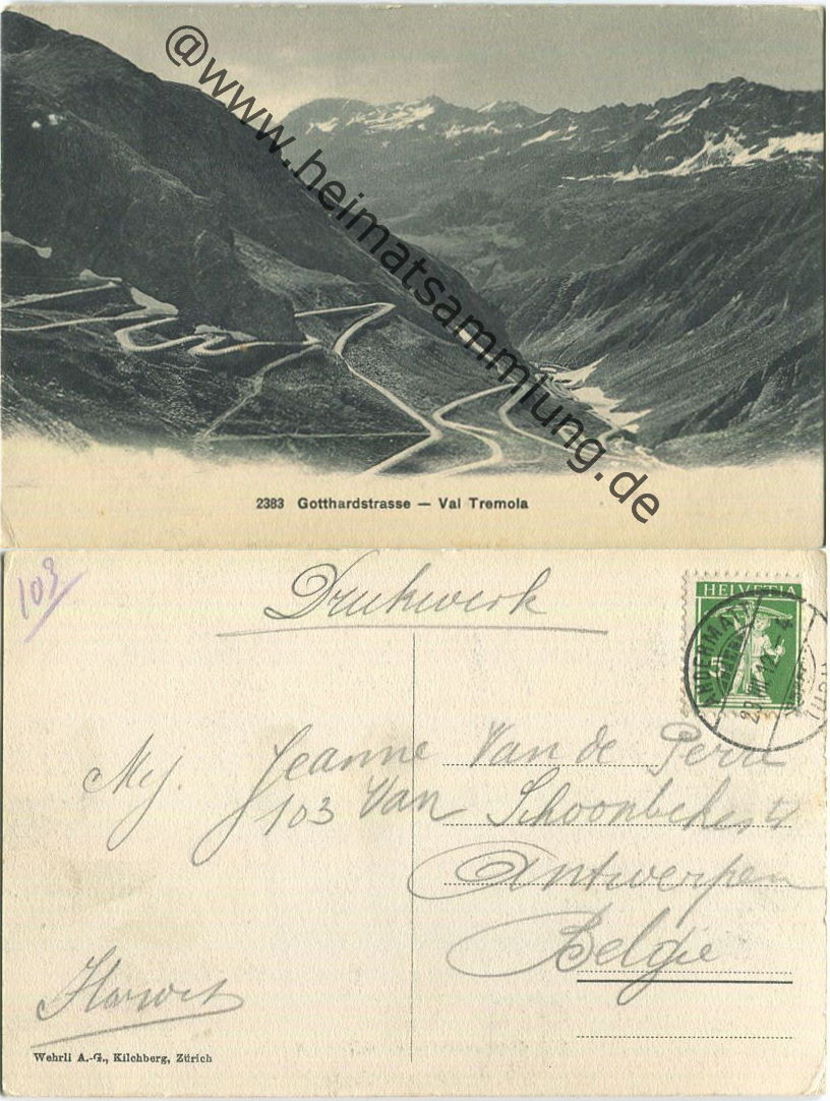 @www.heimatsammlung.de
2383 Gotthardstrasse — Val Tremola
103
Drukwerk
HELVETIA
5
ANDERMATT
Mej. Jeanne Van de Perre
103 Van Schoonbekestr
Antwerpen
Belgie
Wehrli A.-G., Kilchberg, Zürich